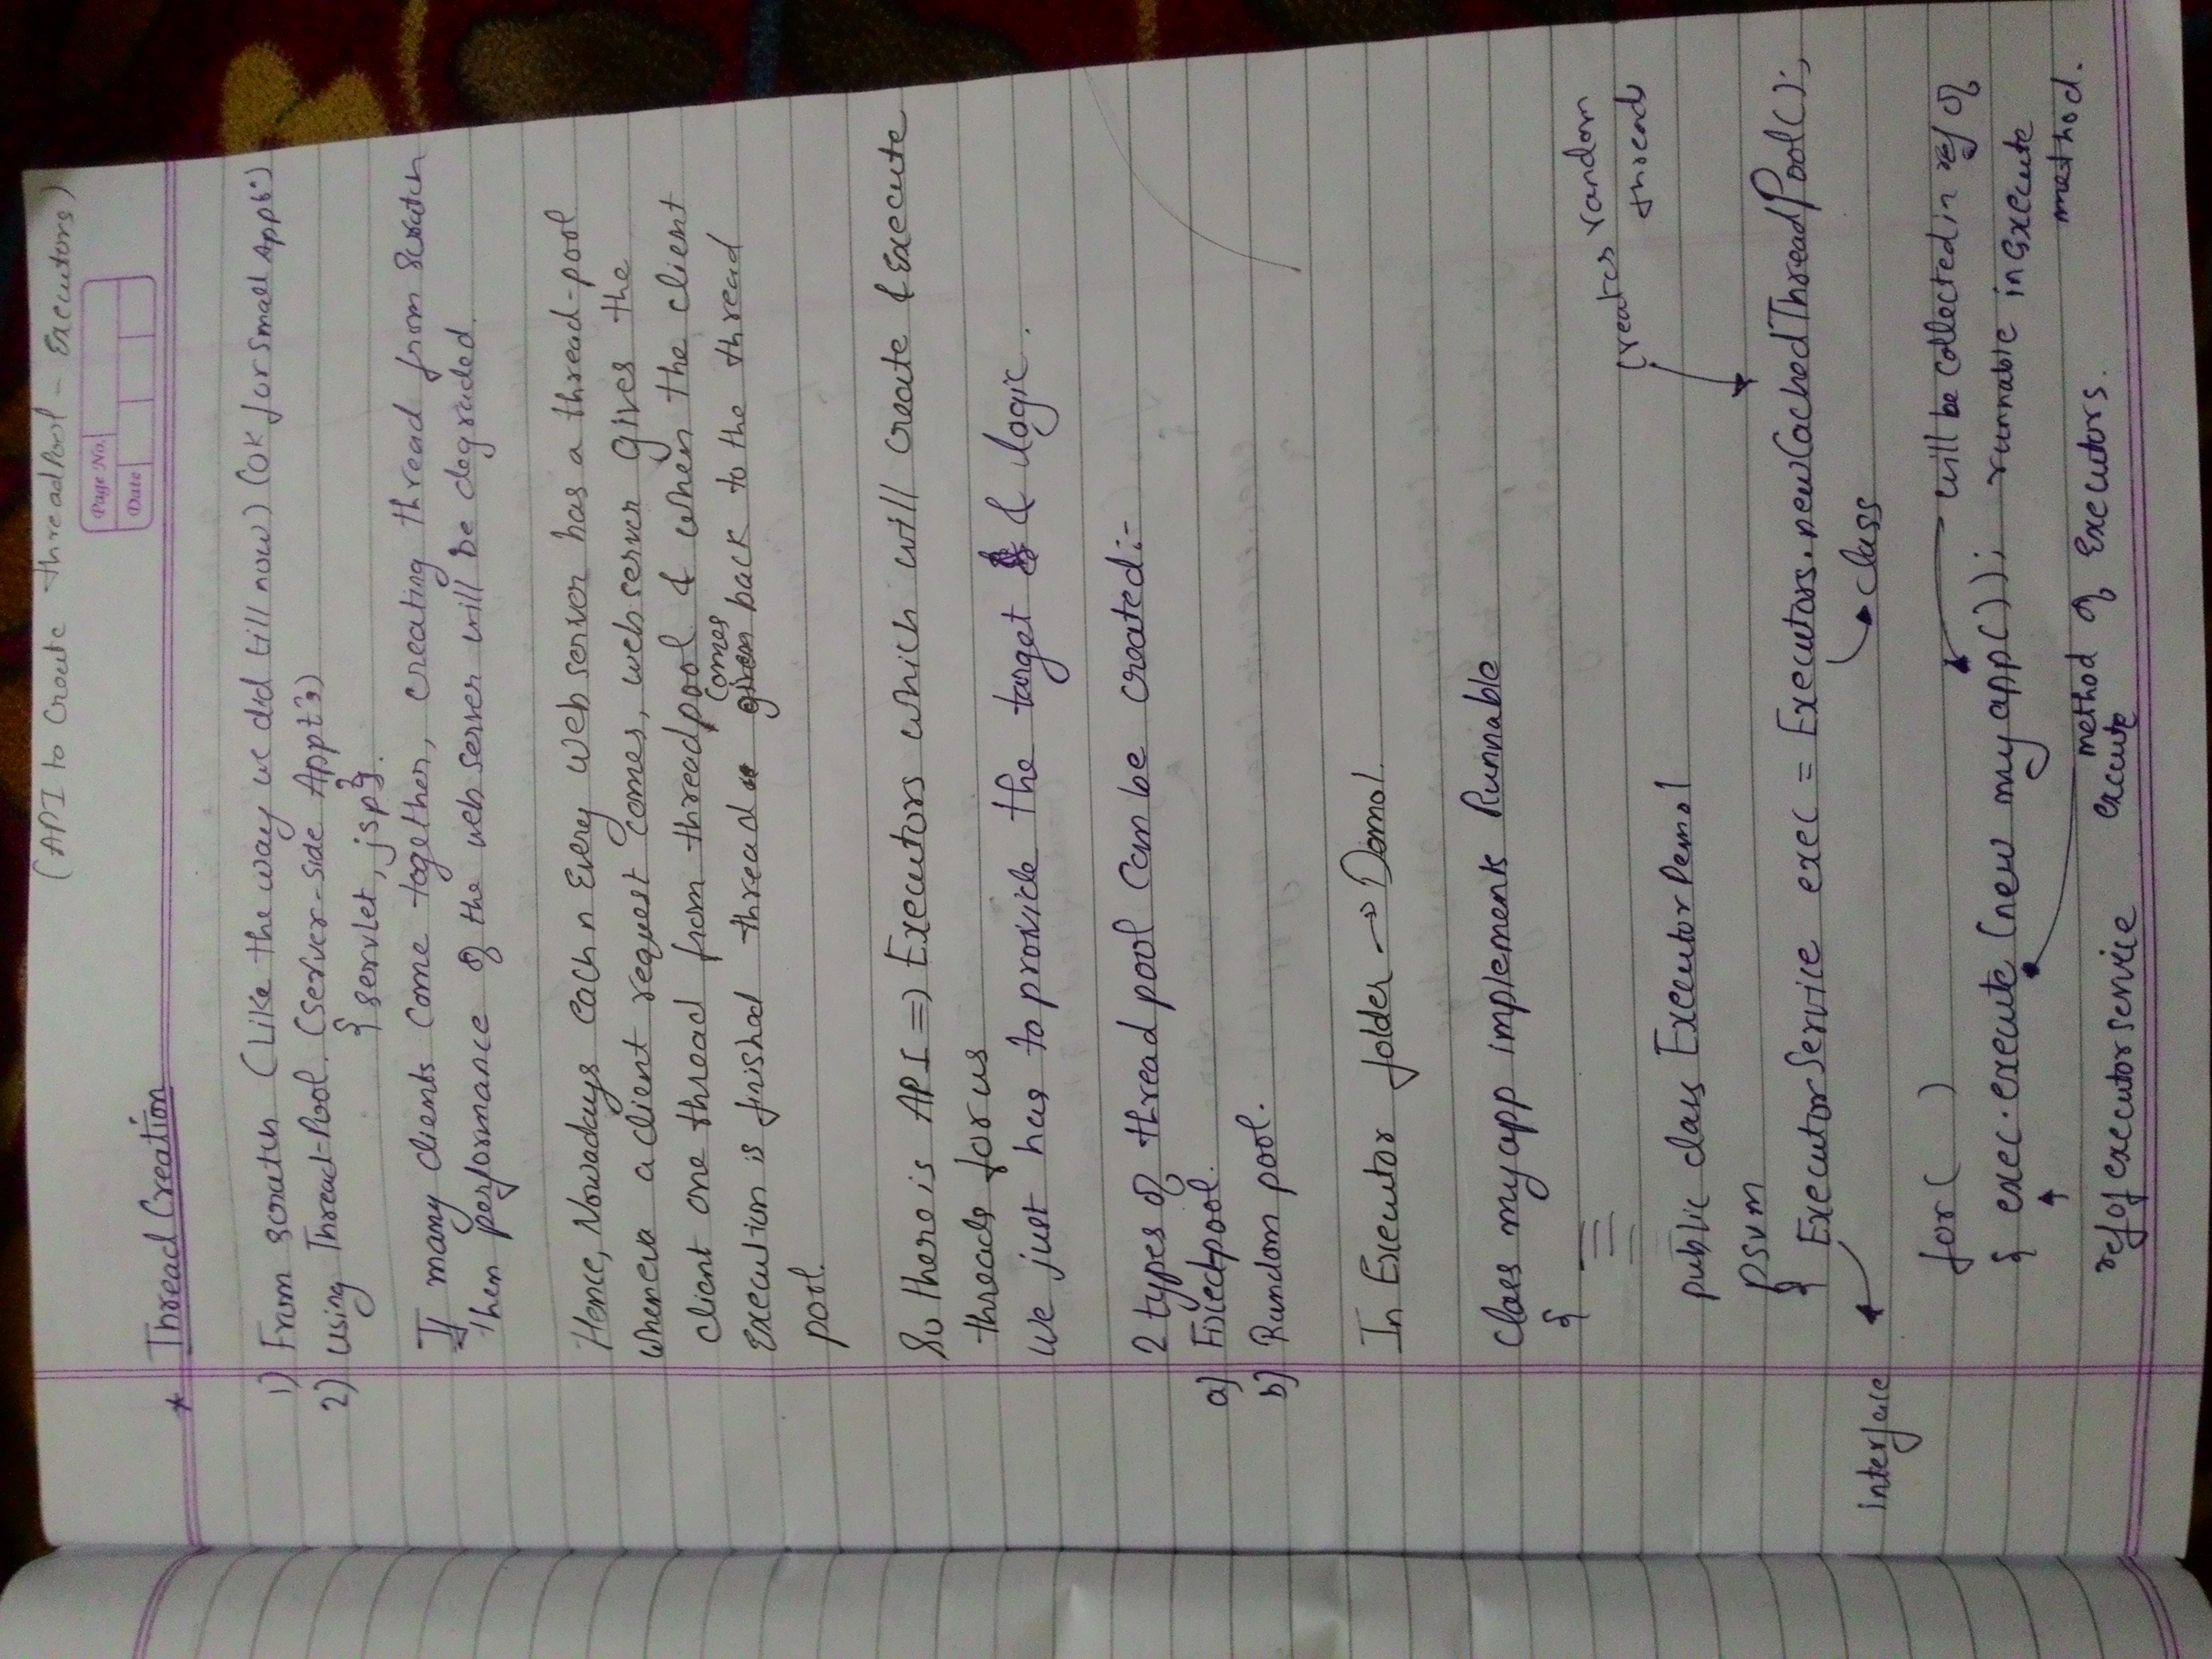 (API to Create threadPool - Executors)
Page No.
Date
* Thread Creation
1) From scratch (Like the way we did till now) (OK for small Appt's)
2) Using Thread-Pool. (Server-side Appt's)
{servlet, jsp}.
If many clients come together, creating thread from scratch
then performance of the web server will be degraded.
Hence, Nowadays each n Every web server has a thread-pool
wheneva a client request comes, web server gives the
client one thread from threadpool & when the client
comes
execution is finished thread back to the thread
pool.
So there is API => Executors which will create & Execute
threads for us
We just has to provide the target & logic.
2 types of thread pool can be created:-
a) Fixedpool.
b) Random pool.
In Executor folder → Demo1.
class myapp implements Runnable
{
creates random
threads
public class ExecutorDemo1
psvm
{ ExecutorService exec = Executors.newCachedThreadPool();
interface
class
for( )
will be collected in ref of
{ exec.execute (new myapp()); runnable in execute
method.
method of Executors.
ref of executor service execute